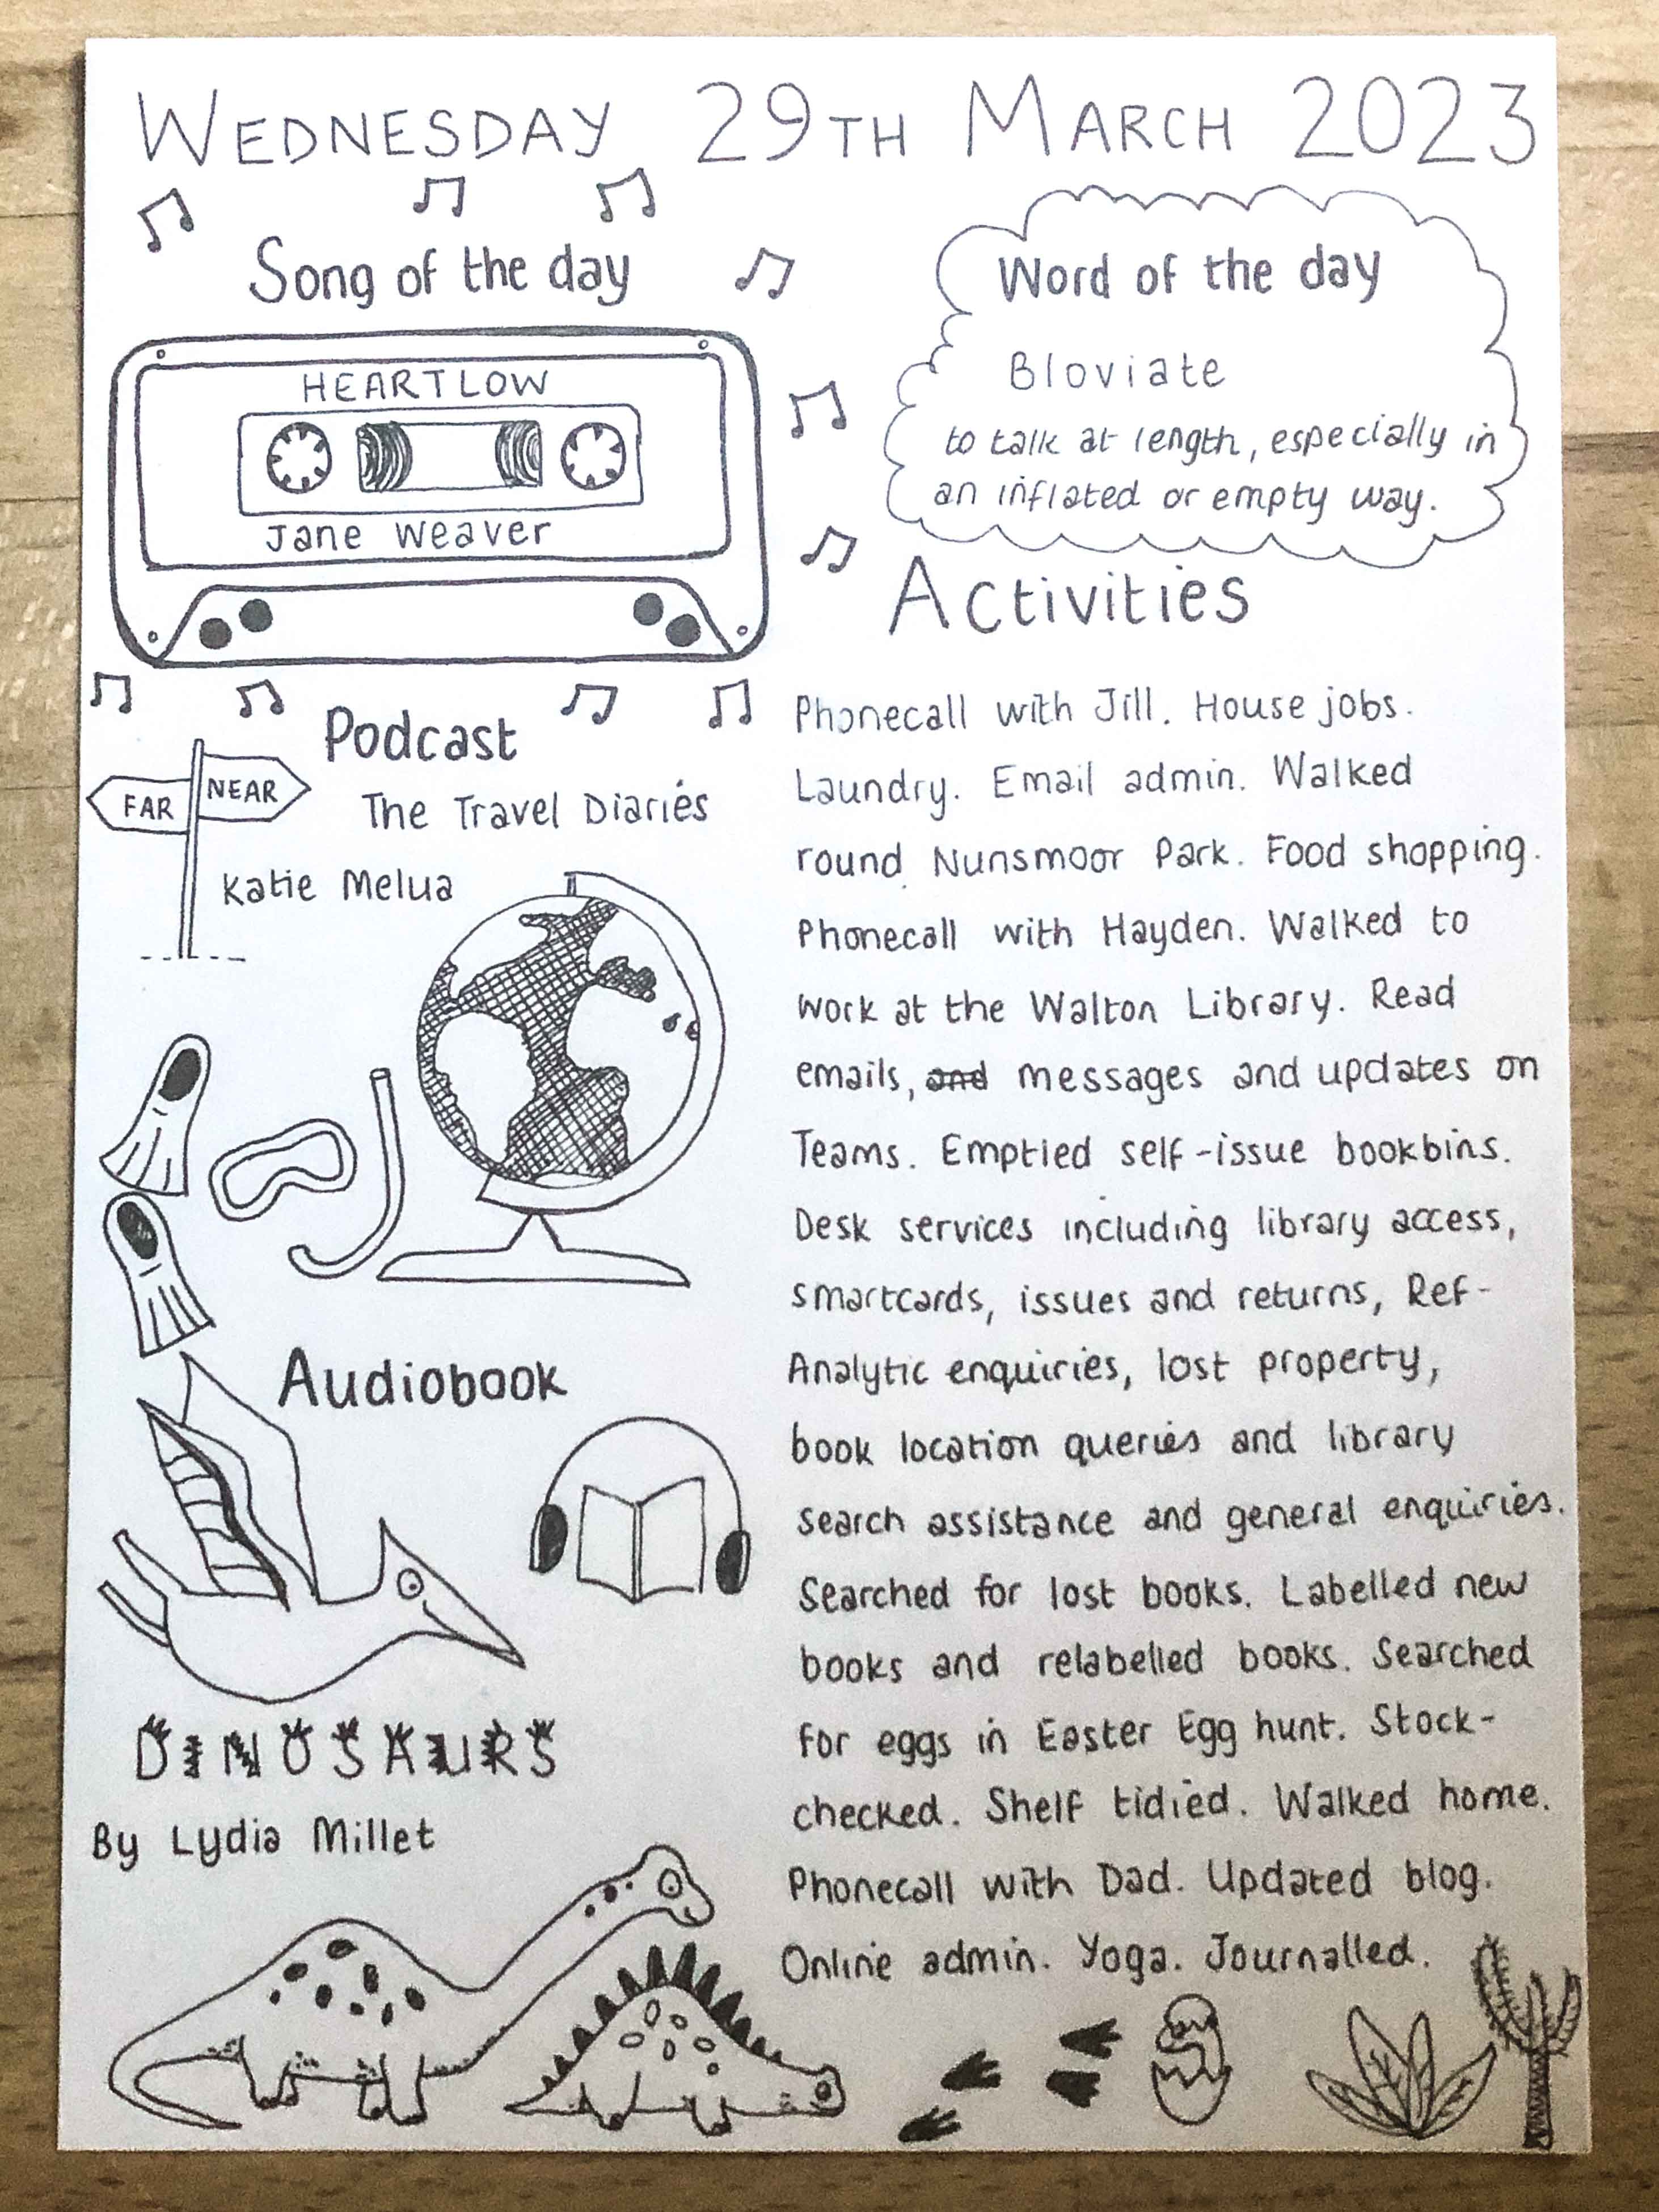 WEDNESDAY 29TH MARCH 2023
Song of the day
HEARTLOW
Jane Weaver
Word of the day
Bloviate
to talk at length, especially in
an inflated or empty way.
Podcast
The Travel Diaries
FAR
NEAR
Katie Melua
Audiobook
DINOSAURS
By Lydia Millet
Activities
Phonecall with Jill. House jobs.
Laundry. Email admin. Walked
round Nunsmoor Park. Food shopping.
Phonecall with Hayden. Walked to
work at the Walton Library. Read
emails, and messages and updates on
Teams. Emptied self-issue bookbins.
Desk services including library access,
smartcards, issues and returns, Ref-
Analytic enquiries, lost property,
book location queries and library
search assistance and general enquiries.
Searched for lost books. Labelled new
books and relabelled books. Searched
for eggs in Easter Egg hunt. Stock-
checked. Shelf tidied. Walked home.
Phonecall with Dad. Updated blog.
Online admin. Yoga. Journalled.